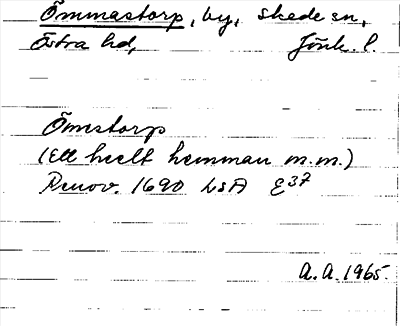 Ömmastorp, by, Skede sn,
Östra hd, Jönk. l.
Ömestorp
(Ett heelt hemman m.m.)
Renov. 1690 LSA E37
A.A. 1965.